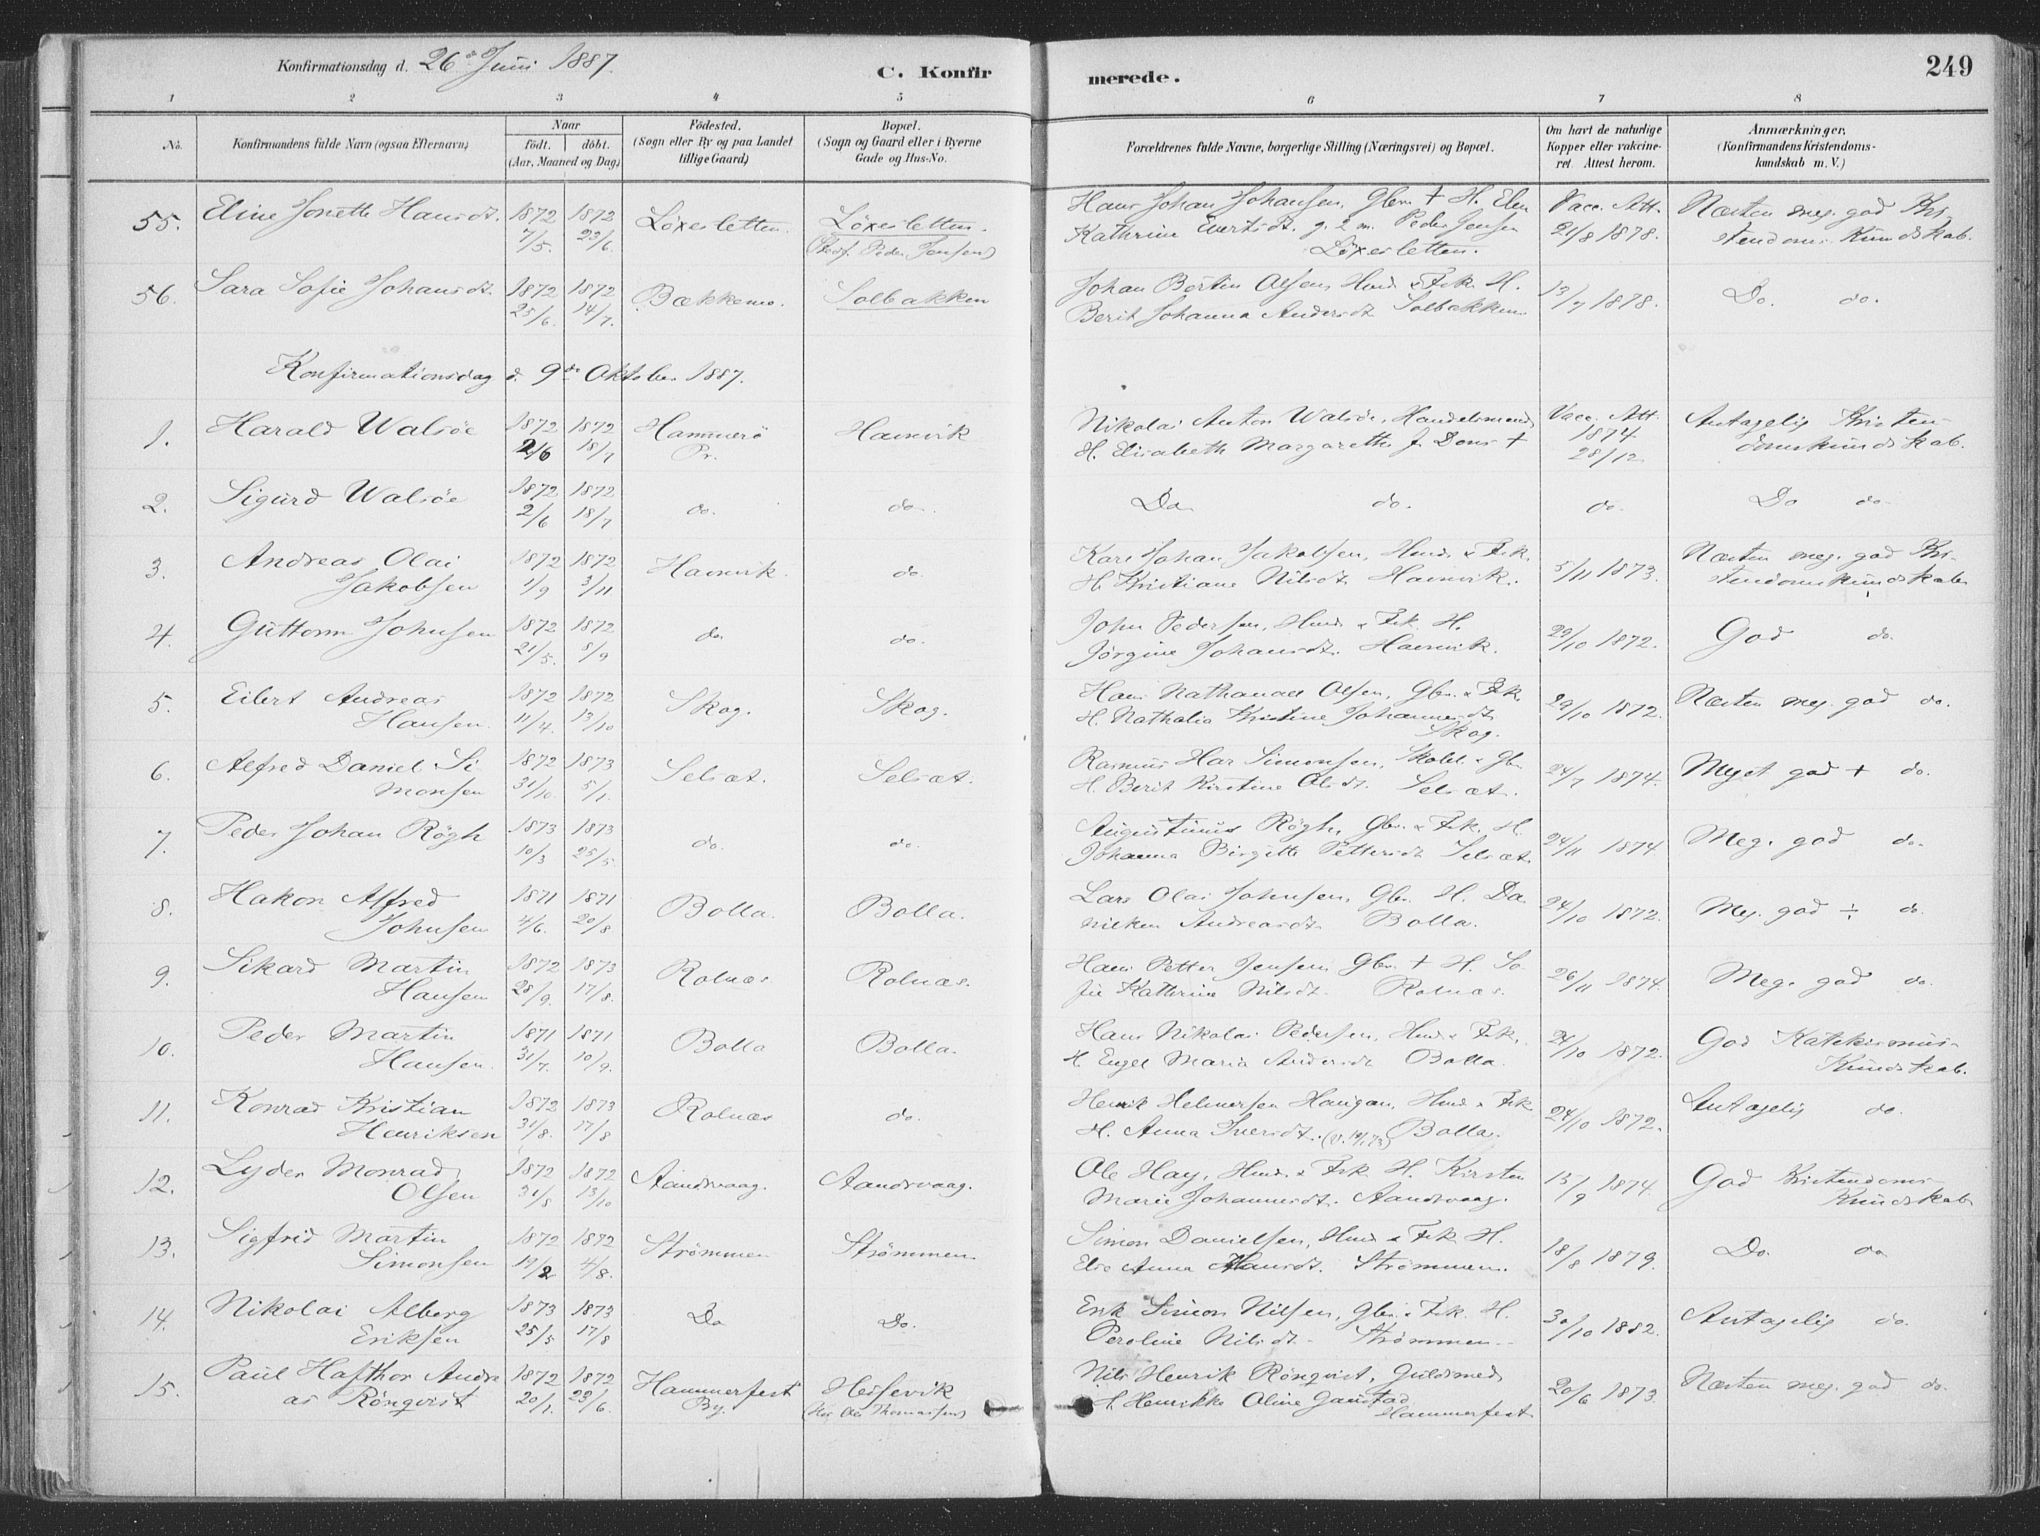 Konfirmationsdag d. 26de Juni 1887.
C. Konfir
merede.
249
1 2 3 4 5 6 7 8
No.
Konfirmandens fulde Navn (ogsaa Efternavn)
Naar
födt. döbt.
(Aar, Maaned og Dag)
Födested.
(Sogn eller By og paa Landet
tillige Gaard)
Bopæl.
(Sogn og Gaard eller i Byerne
Gade og Hus-No.
Forældrenes fulde Navne, borgerlige Stilling (Næringsvei) og Bopæl.
Om havt de naturlige
Kopper eller vakcine-
ret. Attest herom.
Anmærkninger.
(Konfirmandens Kristendoms-
kundskab m. V.)
55. Eline Jonette Hansdt. 1872 1872 Löxesletten. Löxesletten. Hans Johan Johansen, Gbr. + H. Elen Vacc. Att. Næsten meg. god Kri-
7/5. 23/6. (Pleief. Peder Jensen) Kathrine Evertsdt. g. 2 m. Peder Jensen 21/8 1878. stendoms Kundskab.
Löxesletten.
56. Sara Sofie Johansdt. 1872 1872 Bækkemo. Solbakken Johan Bertin Olsen, Hmd. & Fsk. H. 13/7 1878. Do. do.
25/6. 14/7. Berit Johanna Andersdt. Solbakken
Konfirmationsdag d. 9de Oktober 1887.
1. Harald Walsöe 1872 1872 Hammerö Havnvik Nikolai Anton Walsöe, Handelsmand Vacc. Att. Antagelig Kristen-
2/6 18/7 Pr. H. Elisabeth Margarethe f. Dons + 1874 domskundskab.
28/12
2. Sigurd Walsöe 1872 1872 do. do. Do do. do. Do do
2/6 18/7
3. Andreas Olai 1872 1872 Havnvik. do. Karl Johan Jakobsen, Hmd. & Fsk. 5/11 1873. Næsten meg. god Kri-
Jakobsen 1/9 3/11 H. Kristiane Nilsdt. Havnvik. stendomskundskab
4. Guttorm Johnsen 1872 1872 do do. John Pedersen, Hmd. & Fsk. H. 29/10 1872. God do.
21/5. 8/9 Jörgine Johansdt. Havnvik.
5. Eilert Andreas 1872 1872 Skog. Skog. Hans Nathanael Olsen, Gbr. & Fsk. 29/10 1872. Næsten meg. god do.
Hansen. 11/4. 13/10 H. Nathalia Kristine Johannesdt.
Skog.
6. Alfred Daniel Si- 1872 1873 Selsæt. Selsæt. Rasmus Har Simonsen, Skolel. & Gbr. 24/7 1874. Meget god + do.
monsen 31/10. 5/1. H. Berit Kirstine Olsdt. Selsæt.
7. Peder Johan Rögh 1873 1873 do. do. Augustinus Rögh, Gbr. & Fsk. H. 24/11 1874 Meg. god do.
10/3 25/5. Johanna Birgitte Pettersdt. Selsæt
8. Hakon Alfred 1871 1871 Bolla. Bolla. Lars Olai Johnsen, Gbr. H. Da- 24/10 1872. Meg. god ÷ do.
Johnsen 4/6. 20/8 nikken Andreasdt. Bolla.
9. Sikard Martin 1872 1873 Rolnæs. Rolnæs. Hans Petter Jensen Gbr. + H. So- 26/11 1874. Meg. god do.
Hansen 28/9. 17/8. fie Kathrine Nilsdt. Rolnæs.
10. Peder Martin 1871 1871 Bolla Bolla. Hans Nikolai Pedersen, Hmd. & Fsk. 24/10 1872. God Katekismus-
Hansen. 31/7. 10/9. H. Engel Maria Andersdt. Bolla. Kundskab.
11. Konrad Kristian 1872 1873 Rolnæs do. Henrik Helmersen Haugan, Hmd. & Fsk. 24/10 1872. Antagelig do.
Henriksen 31/8. 17/8 H. Anna Iversdt. Bolla.
12. Lyder Monrad 1872 1872 Aandsvaag. Aandsvaag. Ole Hay, Hmd. & Fsk. H. Kirsten 13/9 1874. God Kristendoms-
Olsen 31/8 13/10 Marie Johannesdt. Aandsvaag. Kundskab
13. Sigfrid Martin 1872 1872 Strömmen Strömmen. Simon Danielsen, Hmd. & Fsk. H. 18/8 1879. Do. do
Simonsen 17/2 4/8. Else Anna Hansdt. Strömmen.
14. Nikolai Alberg 1873 1873 Do Do. Erik Simon Nilsen, Gbr. & Fsk. H. 30/10 1882. Antagelig do.
Eriksen 25/5 17/8 Peroline Nilsdt. Strömmen.
15. Paul Hafthor Andre 1872 1872 Hammerfest Hessevik Nils Henrik Rönqvist, Guldsmed 20/6 1873. Næsten meg. god do.
as Rönqvist 20/1. 23/6. By. (Hos Ole Thomassen) H. Henrikke Oline Janstad
Hammerfest